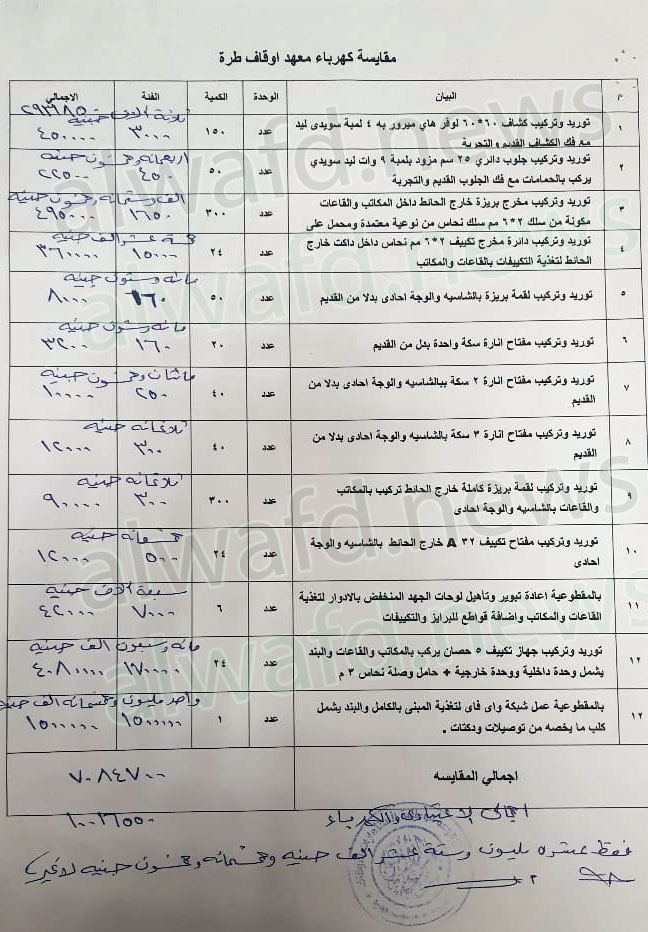 مقايسة كهرباء معهد اوقاف طرة
م البيان الوحدة الكمية الفئة الاجمالي
٢٩٣١٨٥
١ توريد وتركيب كشاف ٦٠*٦٠ لوفر هاي ميرور به ٤ لمبة سويدى ليد مع فك الكشاف القديم و التجربة عدد ١٥٠ ثلاثة الاف جنيه ٣٠٠٠ ٤٥٠٠٠٠
٢ توريد وتركيب جلوب دائري ٢٥ سم مزود بلمبة ٩ وات ليد سويدي يركب بالحمامات مع فك الجلوب القديم والتجربة عدد ٥٠ اربعمائه وخمسون جنيه ٤٥٠ ٢٢٥٠٠
٣ توريد وتركيب مخرج بريزة خارج الحائط داخل المكاتب والقاعات مكونة من سلك ٢*٦ مم سلك نحاس من نوعية معتمدة ومحمل على عدد ٣٠٠ الف وستمائه وخمسون جنيه ١٦٥٠ ٤٩٥٠٠٠
٤ توريد وتركيب دائرة مخرج تكييف ٢*٦ مم نحاس داخل داكت خارج الحائط لتغذية التكييفات بالقاعات والمكاتب عدد ٢٤ خمسة عشر الف جنيه ١٥٠٠٠ ٣٦٠٠٠٠
٥ توريد وتركيب لقمة بريزة بالشاسيه والوجة احادى بدلا من القديم عدد ٥٠ مائه وستون جنيه ١٦٠ ٨٠٠٠
٦ توريد وتركيب مفتاح انارة سكة واحدة بدل من القديم عدد ٢٠ مائه وستون جنيه ١٦٠ ٣٢٠٠
٧ توريد وتركيب مفتاح انارة ٢ سكة ببالشاسيه والوجة احادى بدلا من القديم عدد ٤٠ مائتان وخمسون جنيه ٢٥٠ ١٠٠٠٠
٨ توريد وتركيب مفتاح انارة ٣ سكة بالشاسيه والوجة احادى بدلا من القديم عدد ٤٠ ثلاثمائه جنيه ٣٠٠ ١٢٠٠٠
٩ توريد وتركيب لقمة بريزة كاملة خارج الحائط تركيب بالمكاتب والقاعات بالشاسيه والوجة احادى عدد ٣٠٠ ثلاثمائه جنيه ٣٠٠ ٩٠٠٠٠
١٠ توريد وتركيب مفتاح تكييف ٣٢ A خارج الحائط بالشاسيه والوجة احادى عدد ٢٤ خمسمائه جنيه ٥٠٠ ١٢٠٠٠
١١ بالمقطوعية اعادة تبوير وتاهيل لوحات الجهد المنخفض بالادوار لتغذية القاعات والمكاتب واضافة قواطع للبرايز والتكييفات عدد ٦ سبعة الاف جنيه ٧٠٠٠ ٤٢٠٠٠
١٢ توريد وتركيب جهاز تكييف ٥ حصان يركب بالمكاتب والقاعات والبند يشمل وحدة داخلية ووحدة خارجية + حامل وصلة نحاس ٣ م عدد ٢٤ مائه وسبعون الف جنيه ١٧٠٠٠٠ ٤٠٨٠٠٠٠
١٢ بالمقطوعية عمل شبكة واى فاى لتغذية المبنى بالكامل والبند يشمل كلب ما يخصه من توصيلات ودكتات . عدد ١ واحد مليون وخمسمائه الف جنيه ١٥٠٠٠٠٠ ١٥٠٠٠٠٠
اجمالي المقايسه ٧٠٨٤٧٠٠
اجمالى الاعتيادى والكهرباء ١٠٠١٦٥٥٠
فقط عشره مليون وستة عشر الف جنيه وخمسمائه وخمسون جنيه لاغير
alwafd.news
alwafd.news
alwafd.news
alwafd.news
alwafd.news